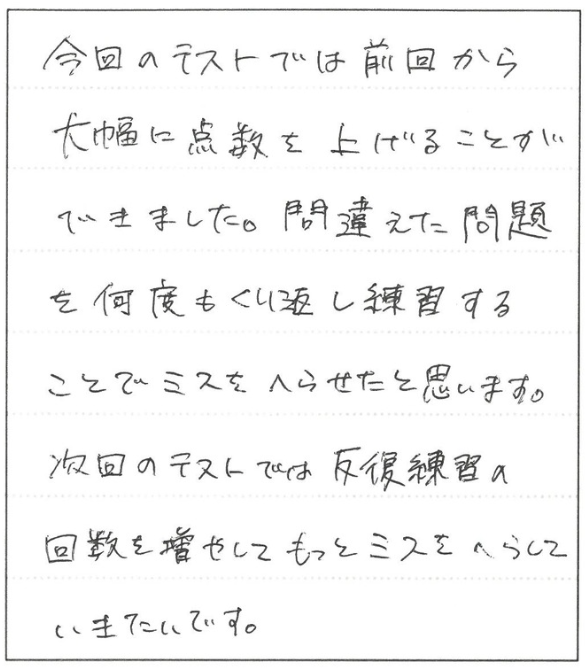 今回のテストでは前回から
大幅に点数を上げることが
できました。問違えた問題
を何度もくり返し練習する
ことでミスをへらせたと思います。
次回のテストでは反復練習の
回数を増やしてもっとミスをへらして
いきたいです。